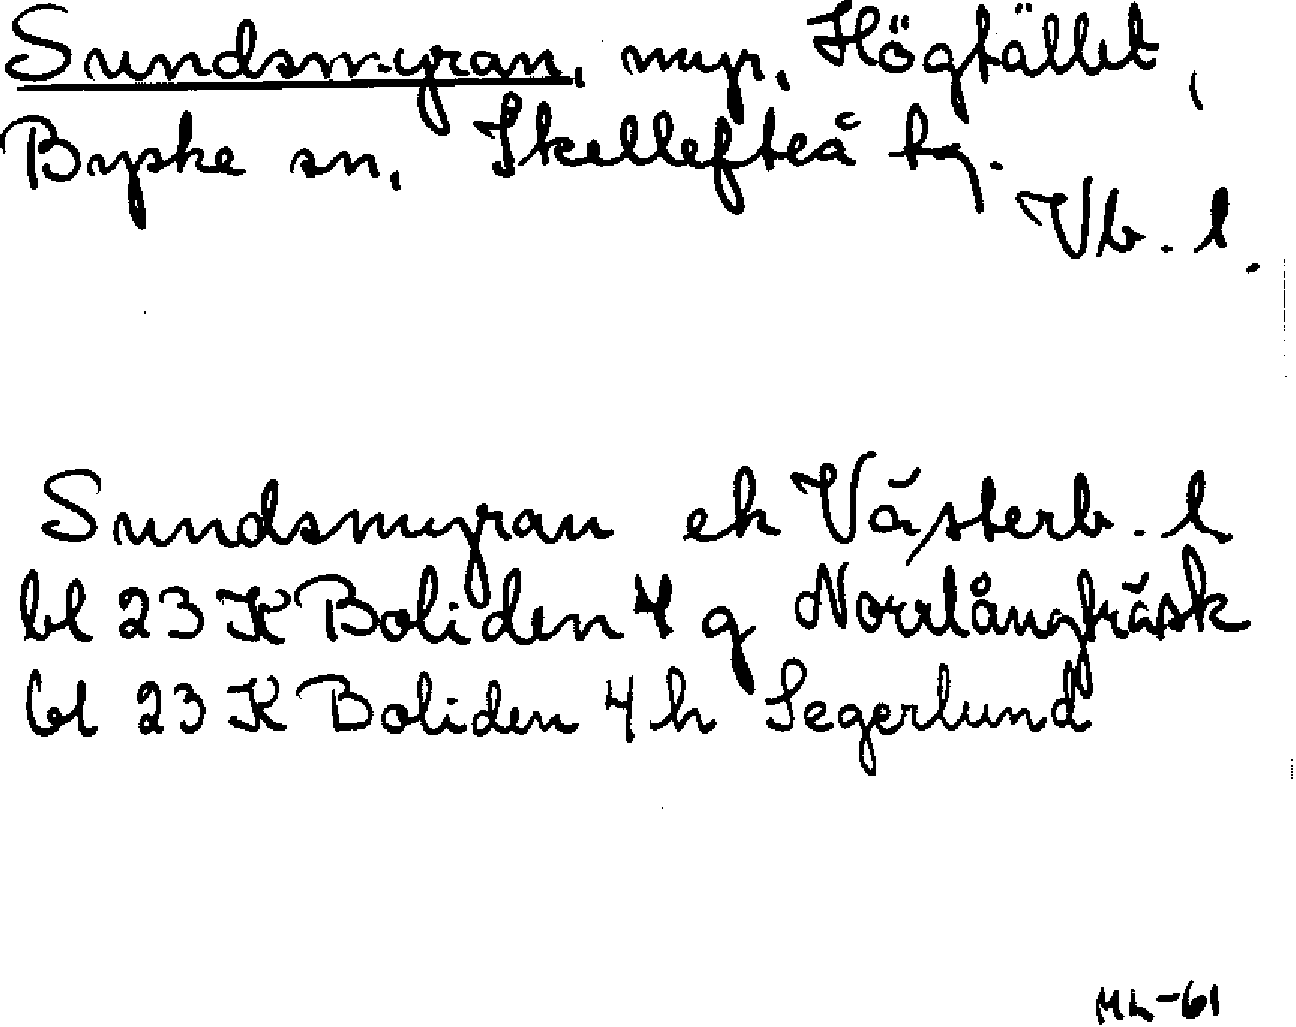 Sundsmyran, myr, Högfället,
Byske sn, Skellefteå tg.
Vb. l.
Sundsmyran ek Västerb. l
bl 23 K Boliden 4 g Norrlångträsk
bl 23 K Boliden 4 h Segerlund
ML-61